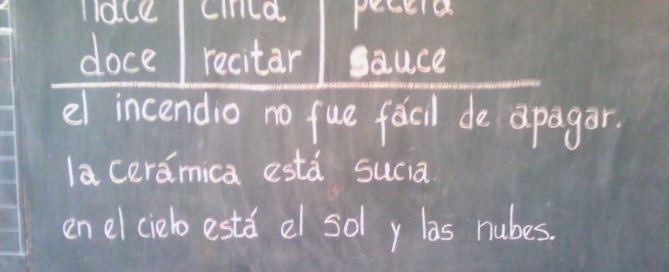 nace cinta pecera
doce recitar sauce
el incendio no fue fácil de apagar.
la cerámica está sucia.
en el cielo está el sol y las nubes.